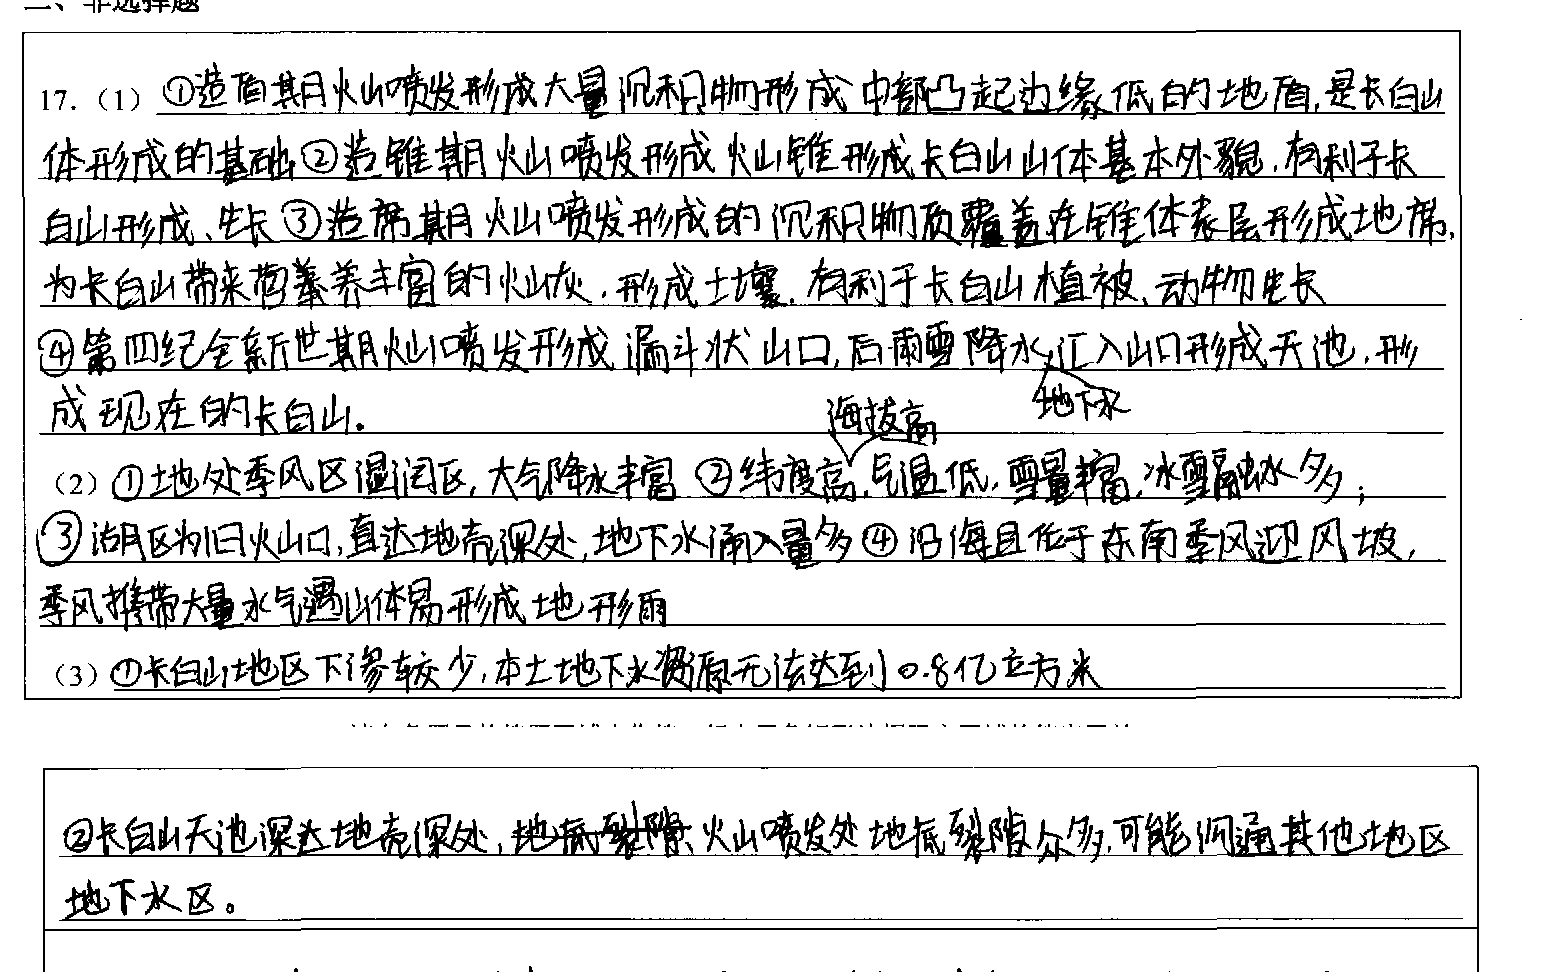 二、非选择题
17.（1）①造盾期火山喷发形成大量沉积物形成中部凸起边缘低的地盾，是长白山
体形成的基础②造锥期火山喷发形成火山锥形成长白山山体基本外貌，有利于长
白山形成、生长③造席期火山喷发形成的沉积物质覆盖在锥体表层形成地席，
为长白山带来营养丰富的火山灰，形成土壤，有利于长白山植被、动物生长
④第四纪全新世期火山喷发形成漏斗状山口，后雨雪降水、汇入山口形成天池，形
地下水
成现在的长白山。
海拔高
（2）①地处季风区湿润区，大气降水丰富②纬度高，气温低，雪量丰富，冰雪融水多；
③湖区为旧火山口，直达地壳深处，地下水涌入量多④沿海且位于东南季风迎风坡，
季风携带大量水气遇山体易形成地形雨
（3）①长白山地区下渗较少，本土地下水资源无法达到0.8亿立方米
②长白山天池深达地壳深处，火山喷发处地底裂隙众多，可能沟通其他地区
地下水区。